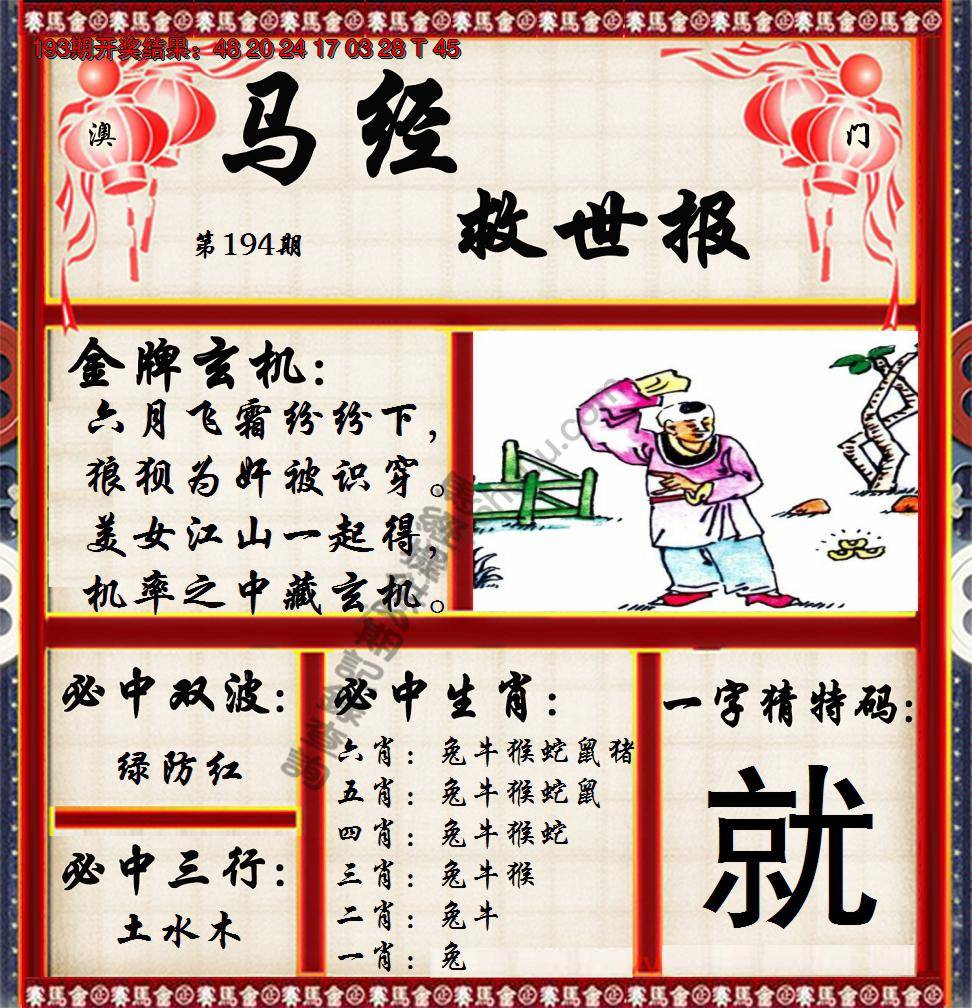 193期开奖结果：48 20 24 17 03 28 T 45
澳
门
马经
救世报
第194期
金牌玄机：
六月飞霜纷纷下，
狼狈为奸被识穿。
美女江山一起得，
机率之中藏玄机。
必中双波：
绿防红
必中三行：
土水木
必中生肖：
六肖：兔牛猴蛇鼠猪
五肖：兔牛猴蛇鼠
四肖：兔牛猴蛇
三肖：兔牛猴
二肖：兔牛
一肖：兔
一字猜特码：
就